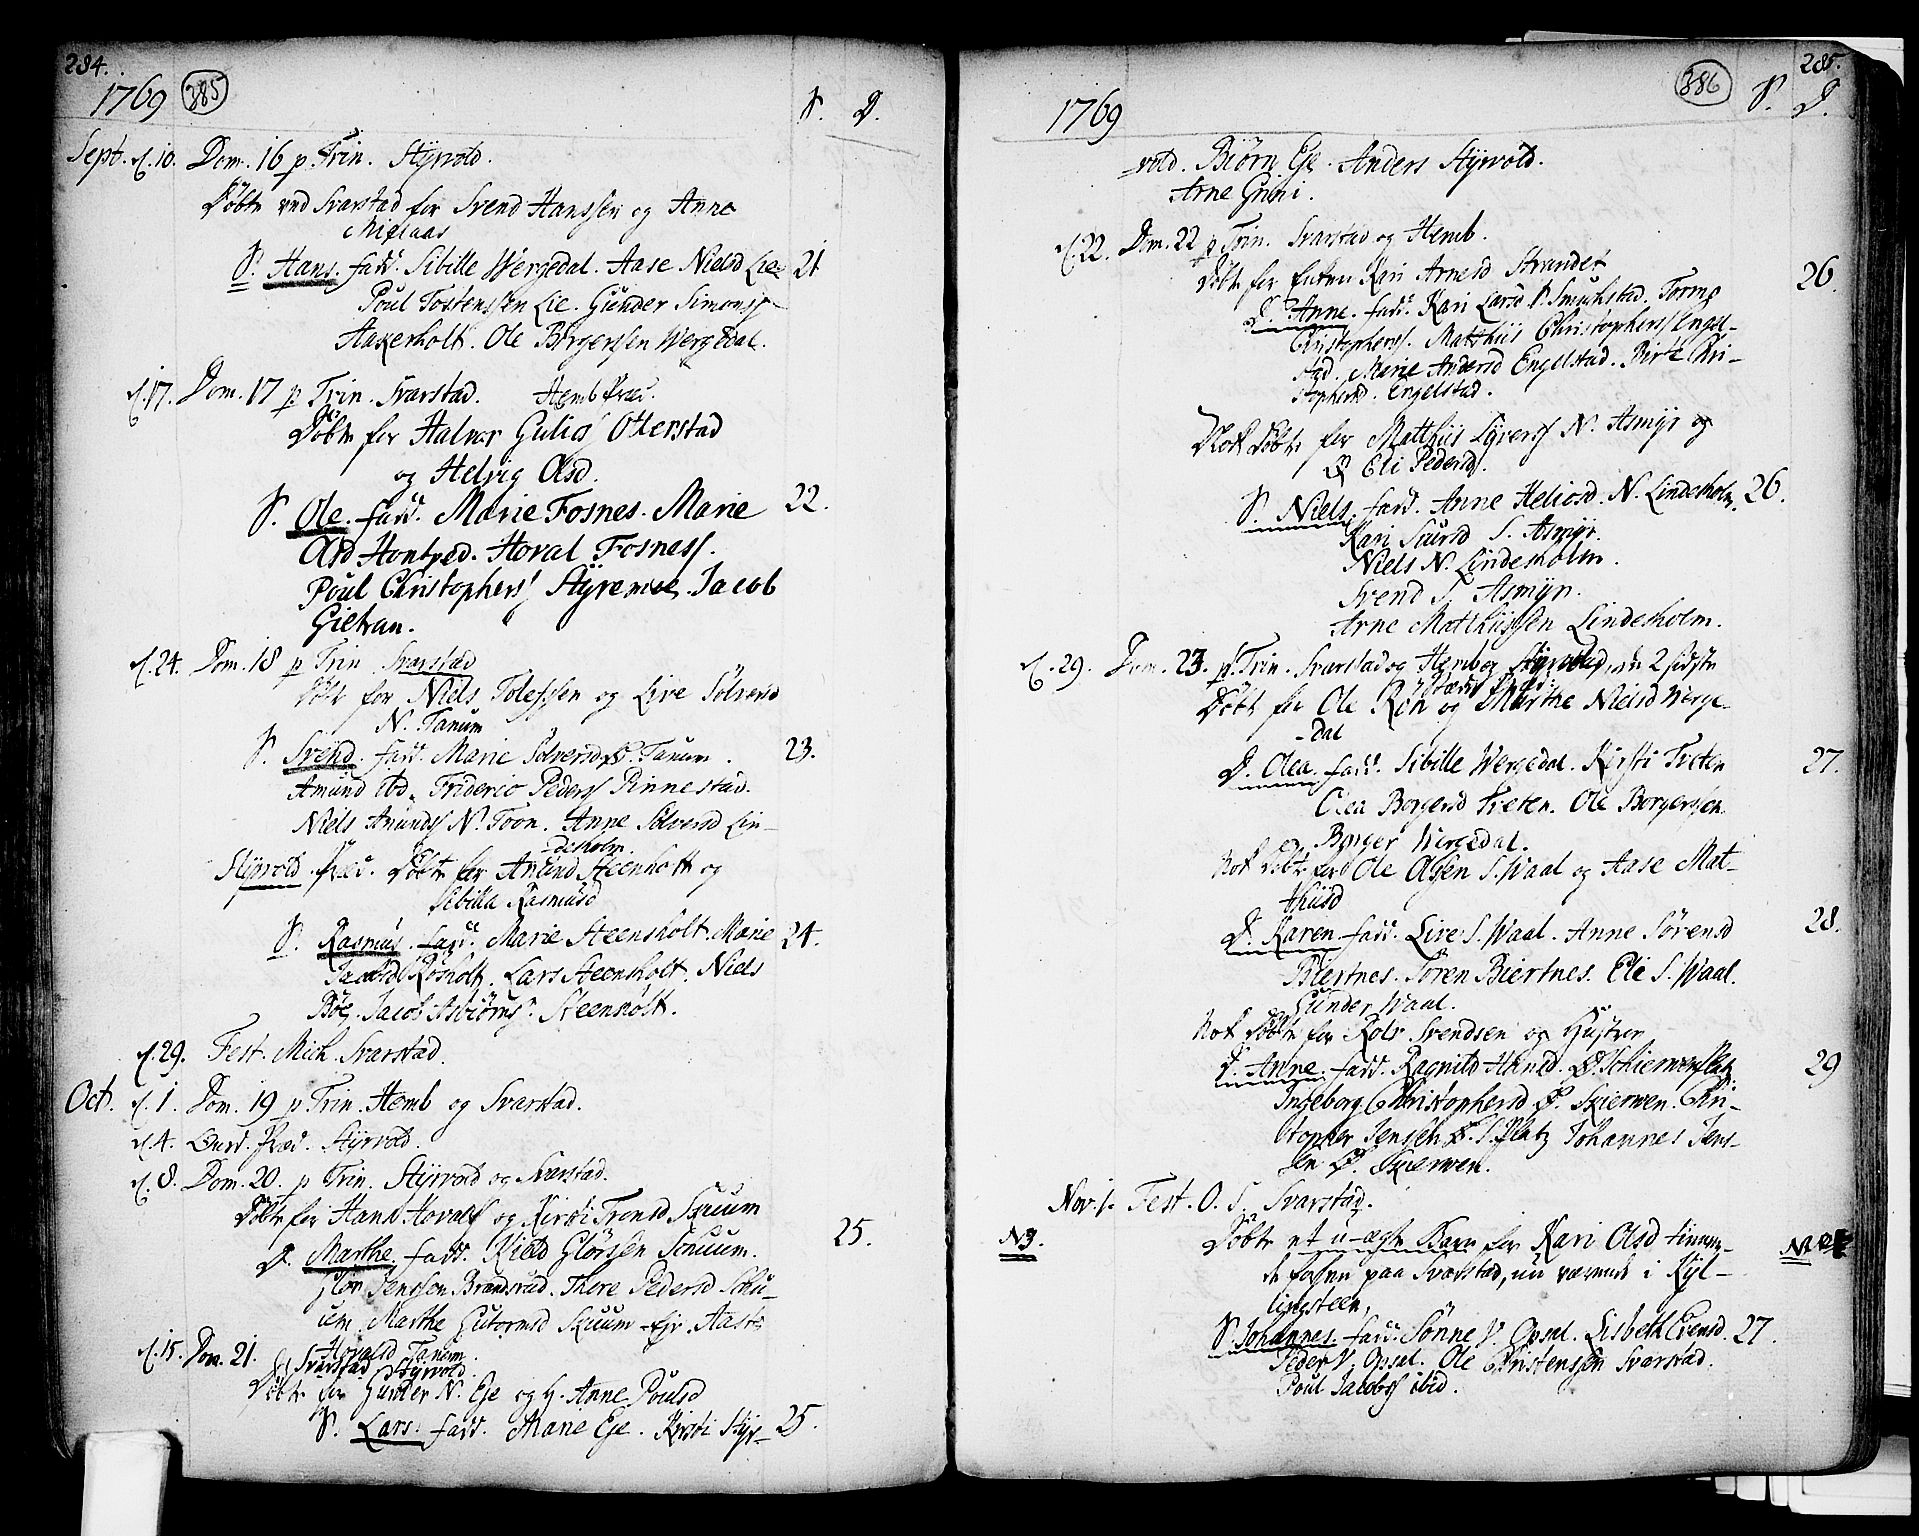 284.
1769 385 S. D.
Sept. d. 10. Dom. 16 p. Trin. Styrvold.
Döbte ved Svarstad for Svend Hanssen og Anne
S. Hans. fadd. Sibille Wergedal. Aase Nielsd Lie 21
Poul Tostenssen Lie. Gunder Simonss
Aakerholt. Ole Börgerssen Wergedal.
d. 17. Dom. 17 p Trin. Svarstad. Hemb Præd.
Döbte for Halvor Guliss Otterstad
og Helvig Olsd.
S. Ole. fadd. Marie Fosnes. Marie 22.
Olsd. Hoval Fosness.
Poul Christopherss Styremoe. Jacob
d. 24. Dom. 18 p Trin Svarstad
Döbt for Niels Tolessen og Live Sölversd
N. Tanum
S. Svend. fadd. Marie Sölversd Tanum. 23.
Amund ibd. Frideric Pederss Rinnestad.
Niels Amundss N. Foon. Anne Sölversd Lin-
deholm.
Styrvold. Præd. Döbte for Amund Steenholt og
Sibilla Rasmusd
S. Rasmus. fadd. Marie Steensholt. Marie 24.
Jacobsd Rösholt. Lars Steensholt. Niels
Böe. Jacob Steensholt.
d. 29. Fest. Mich. Svarstad.
Oct. d. 1. Dom. 19 p Trin. Hemb og Svarstad.
d. 4. Præd. Styrvold.
d. 8. Dom. 20. p Trin. Styrvold og Svarstad.
Döbte for Hans Hovalss og Kirsti Skuum
D. Marthe. fadd. Kield Glörsen Schuum. 25.
Glör Jenssen Brandsrud. Thore Pedersd Schu-
um. Marthe Gutormsd Skuum
Hovalsd Tanum.
d. 15. Dom. 21. Svarstad Styrvold.
Döbte for Gunder N. Eje og H. Anne Poulsd
S. Lars. fadd. Marie Eje. Kirsti Styr- 25.
285.
1769 386 S. D.
vold. Biörn Eje. Anders Styrvold.
Arne Grini.
d. 22. Dom. 22 p Trin. Svarstad og Hemb.
Döbt for Kari Arnesd Strandet 26.
D. Anne. fadd. Kari Larsd
Christopherss. Matthiis Christopherss Engel-
stad. Marie Andersd Engelstad. Birte Chri-
stophersd. Engelstad.
Nok Döbte for Matthiis Syverss N. Asmyr og
Eli Pedersd.
S. Niels. fadd. Anne N. Lindeholm. 26.
Kari S. Asmyr.
Niels N. Lindeholm.
Svend S. Asmyr.
Arne Matthiissen Lindeholm.
d. 29. Dom. 23. p. Trin. Svarstad og Hemb og Styrvold, de 2 sidste
Döbt for Ole og Marthe Nielsd Werge-
dal
D. Olea. fadd. Sibille Wergedal. Kirsti Treten 27.
Olea Borgersd Treten. Ole Borgerssen.
Borger Wergedal.
Nok Döbte for Ole Olssen S. Waal og Aase Mat-
thiisd
D. Karen. fadd. Live S. Waal. Anne Sörensd 28.
Biertnes. Sören Biertnes. Eli S. Waal.
Gunder Waal.
Nok Döbte for Rolv Svendsen og Hustrue
D. Anne. fadd. Ragnild 29
Ingeborg Christophersd Ø. Skierwen. Chri-
stopher Jensen Johannes Jens-
sen Ø. Skierwen.
Nov. 1. Fest. O. S. Svarstad.
N3. Döbte et u-ægte Barn for Kari Olsd
paa Svarstad, nu værende i Kyl-
lingsteen,
S. Johannes. fadd. Sönne V. Opsal. Lisbeth Evensd. 27.
Peder V. Opsal. Ole Christensen Svarstad.
Poul Jacobss ibid.